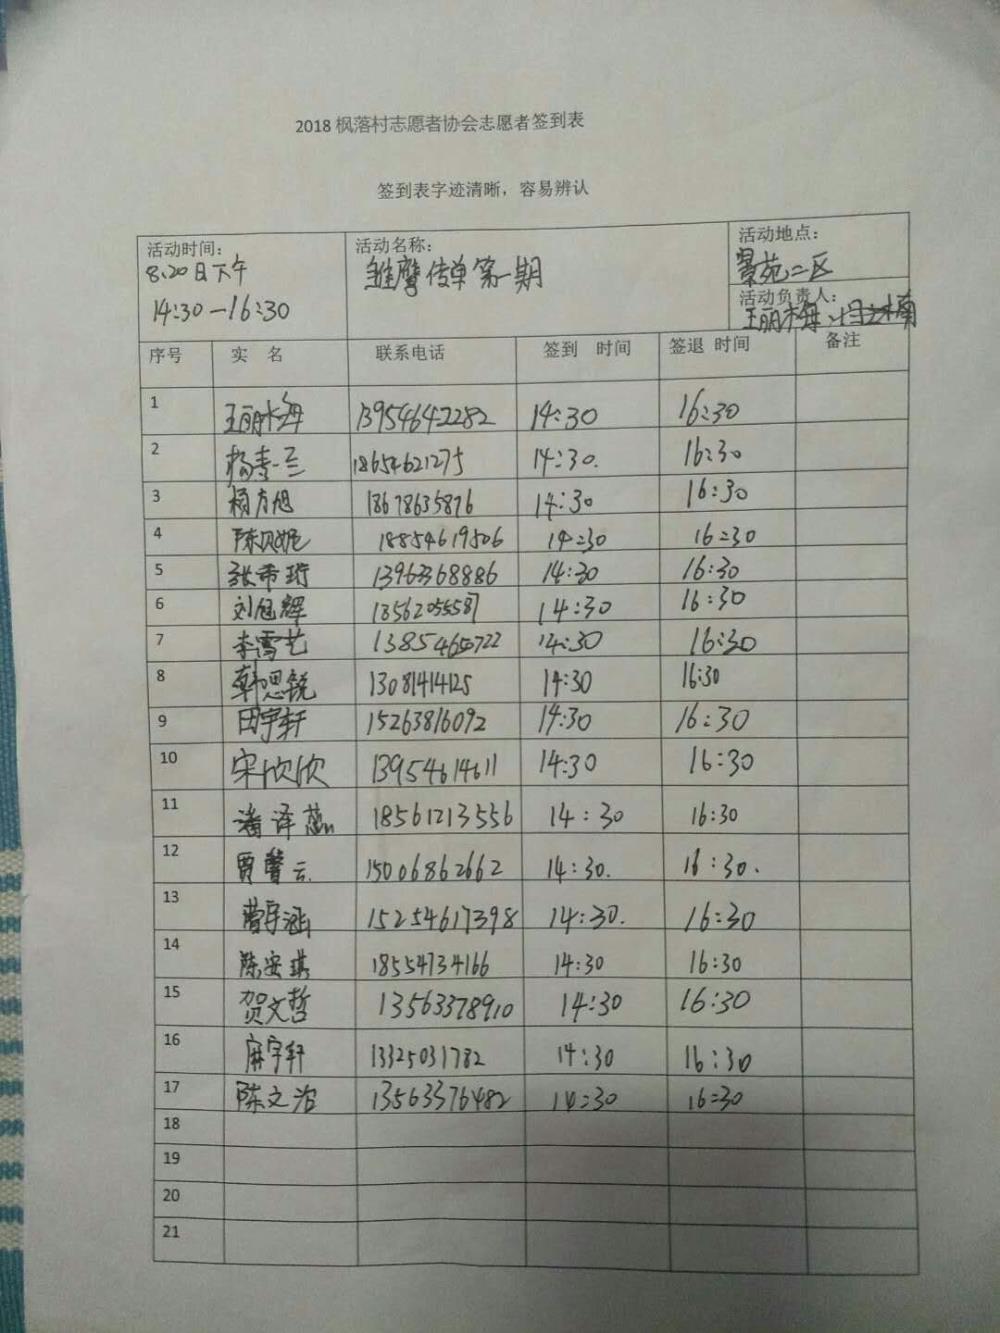 2018 枫落村志愿者协会志愿者签到表
签到表字迹清晰，容易辨认
活动时间：
8.20日下午
14:30—16:30
活动名称：
雏鹰传单第一期
活动地点：
景苑二区
活动负责人：
王丽梅
序号 实 名 联系电话 签到 时间 签退 时间 备注
1 王丽梅 13954642282 14:30 16:30
2 杨 18654621275 14:30. 16:30
3 杨方旭 18678635876 14:30 16:30
4 陈贝妮 18854619506 14:30 16:30
5 张希珩 1396 14:30 16:30
6 刘旭辉 13562055587 14:30 16:30
7 李雪艺 13854650722 14:30 16:30
8 韩思锐 13081414125 14:30 16:30
9 田宇轩 15263816092 14:30 16:30
10 宋欣欣 13954614611 14:30 16:30
11 潘泽 18561213556 14:30 16:30
12 贾馨云 15006862662 14:30. 16:30.
13 曹宇涵 15254617398 14:30. 16:30
14 陈安琪 18554734166 14:30 16:30
15 贺文哲 13563378910 14:30 16:30
16 宇轩 13325031782 14:30 16:30
17 陈文治 13563376482 14:30 16:30
18
19
20
21